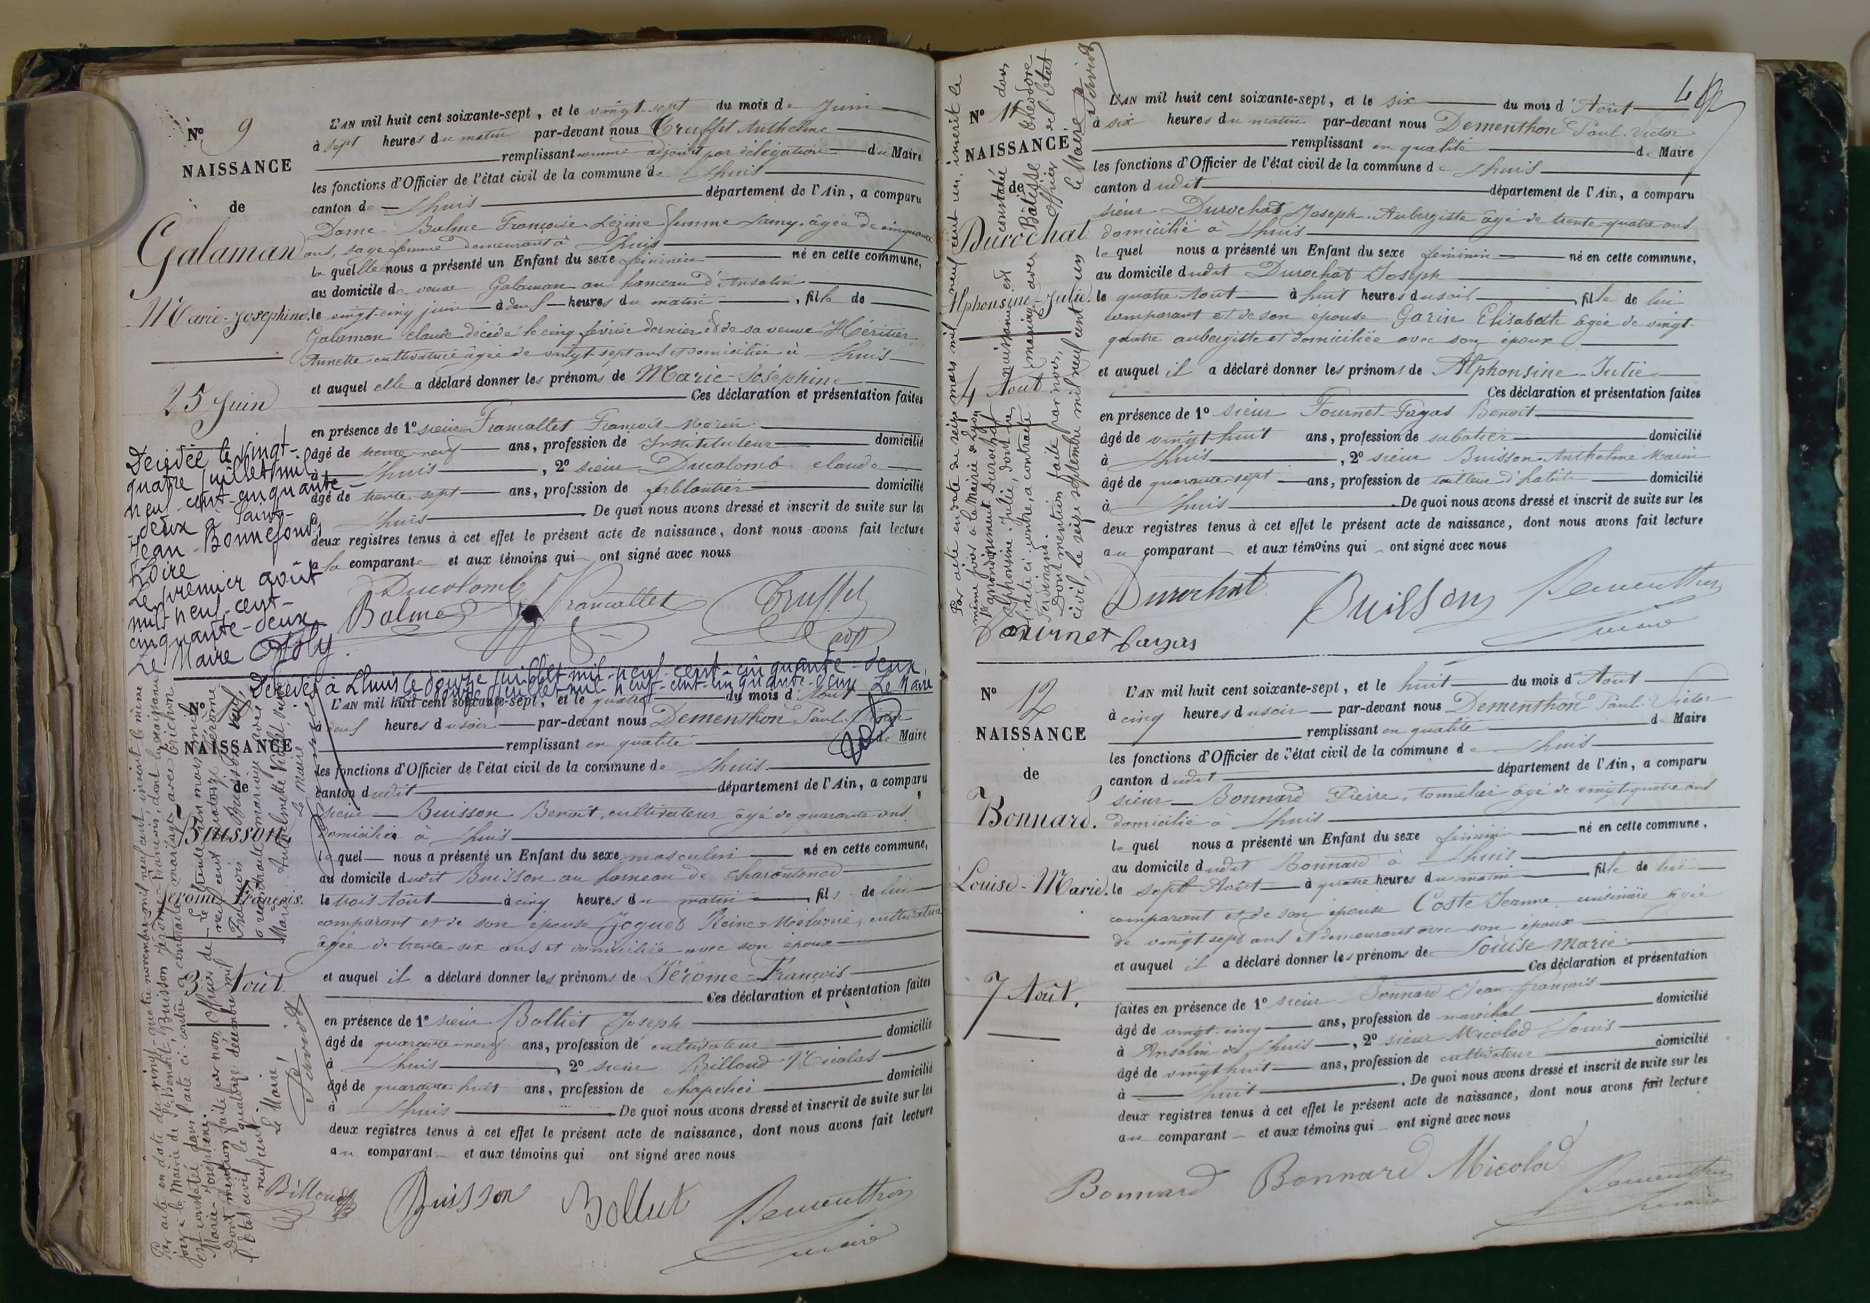 N° 9
NAISSANCE
de
Galaman
Marie-Joséphine.
25 Juin
Décédée le vingt-
quatre juillet mil
neuf-cent-cinquante-
deux à Saint-
Jean-Bonnefonds
Loire
Le premier août
mil-neuf-cent-
cinquante-deux
Le Maire
L'AN mil huit cent soixante-sept, et le vingt sept du mois de Juin
à sept heures du matin par-devant nous Truffet Anthelme
remplissant comme adjoint par délégation du Maire
les fonctions d'Officier de l'état civil de la commune de Lhuis
canton de Lhuis département de l'Ain, a comparu
Dame Balme Françoise femme âgée de cinquante
ans, sage femme demeurant à Lhuis
la quelle nous a présenté un Enfant du sexe féminin né en cette commune,
au domicile de veuve Galaman au hameau d'Ansolin
le vingt cinq juin à heures du matin, fille de
Galaman Claude décédé le cinq février dernier et de sa veuve Héritier
Annette cultivatrice âgée de vingt sept ans et domiciliée à Lhuis
et auquel elle a déclaré donner les prénoms de Marie-Joséphine
Ces déclaration et présentation faites
en présence de 1° sieur Francallet François Marin
âgé de trente neuf ans, profession de Instituteur domicilié
à Lhuis, 2° sieur Ducolomb Claude
âgé de trente-sept ans, profession de ferblantier domicilié
à Lhuis De quoi nous avons dressé et inscrit de suite sur les
deux registres tenus à cet effet le présent acte de naissance, dont nous avons fait lecture
à la comparante et aux témoins qui ont signé avec nous
Ducolomb
Balme Francallet Truffet
adjt
Décédé à Lhuis le douze juillet mil-neuf-cent-cinquante-deux
douze juillet mil-neuf-cent-cinquante-deux Le Maire
N°
NAISSANCE
de
Buisson
Jérôme-François.
3 Août
Par acte en date du vingt quatre novembre mil neuf cent inscrit le même
jour à la Mairie de Buisson Jérôme-François, dont la naissance
est constatée dans l'acte ci-contre a contracté mariage avec
Marie-Joséphine.
Dont mention faite par nous, Officier de
l'état civil, le quatorze décembre mil
neuf cent
Le Maire,
L'AN mil huit cent soixante-sept, et le quatre du mois d'Août
à neuf heures du soir par-devant nous Dementhon Paul Victor
remplissant en qualité de Maire
les fonctions d'Officier de l'état civil de la commune de Lhuis
canton dudit département de l'Ain, a comparu
sieur Buisson Benoit, cultivateur âgé de quarante ans
domicilié à Lhuis
le quel nous a présenté un Enfant du sexe masculin né en cette commune,
au domicile dudit Buisson au hameau de
le trois Août à cinq heures du matin, fils de lui
comparant et de son épouse Jequet Reine-Mélanie, cultivatrice
âgée de trente-six ans et domiciliée avec son époux
et auquel il a déclaré donner les prénoms de Jérôme-François
Ces déclaration et présentation faites
en présence de 1° sieur Bolliet Joseph
âgé de quarante-neuf ans, profession de cultivateur domicilié
à Lhuis, 2° sieur Billoud Nicolas
âgé de quarante-huit ans, profession de chapelier domicilié
à Lhuis De quoi nous avons dressé et inscrit de suite sur les
deux registres tenus à cet effet le présent acte de naissance, dont nous avons fait lecture
au comparant et aux témoins qui ont signé avec nous
Billoud Buisson Bolliet Dementhon
maire
N° 11
NAISSANCE
de
Durochat
Alphonsine-Julie.
4 Août
Par acte en date du seize mars mil neuf cent un, inscrit le
même jour à la Mairie de Lyon
Alphonsine-Julie, dont la naissance est constatée dans
l'acte ci-contre, a contracté mariage avec
Dont mention faite par nous, Officier de l'état
civil, le seize septembre mil neuf cent un Le Maire
L'AN mil huit cent soixante-sept, et le six du mois d'Août
à six heures du matin par-devant nous Dementhon Paul Victor
remplissant en qualité de Maire
les fonctions d'Officier de l'état civil de la commune de Lhuis
canton dudit département de l'Ain, a comparu
sieur Durochat Joseph Aubergiste âgé de trente quatre ans
domicilié à Lhuis
le quel nous a présenté un Enfant du sexe féminin né en cette commune,
au domicile dudit Durochat Joseph
le quatre Août à huit heures du soir, fille de lui
comparant et de son épouse Garin Elisabeth âgée de vingt
quatre aubergiste et domiciliée avec son époux
et auquel il a déclaré donner les prénoms de Alphonsine Julie
Ces déclaration et présentation faites
en présence de 1° sieur Fournet-Fayas Benoit
âgé de vingt huit ans, profession de sabotier domicilié
à Lhuis, 2° sieur Buisson Anthelme Marin
âgé de quarante-sept ans, profession de tailleur d'habits domicilié
à Lhuis De quoi nous avons dressé et inscrit de suite sur les
deux registres tenus à cet effet le présent acte de naissance, dont nous avons fait lecture
au comparant et aux témoins qui ont signé avec nous
Durochat Buisson Dementhon
maire
Fournet Fayas
N° 12
NAISSANCE
de
Bonnard.
Louise-Marie.
7 Août.
L'AN mil huit cent soixante-sept, et le huit du mois d'Août
à cinq heures du soir par-devant nous Dementhon Paul Victor
remplissant en qualité de Maire
les fonctions d'Officier de l'état civil de la commune de Lhuis
canton dudit département de l'Ain, a comparu
sieur Bonnard Pierre, tonnelier âgé de vingt quatre ans
domicilié à Lhuis
le quel nous a présenté un Enfant du sexe féminin né en cette commune.
au domicile dudit Bonnard à Lhuis
le sept Août à quatre heures du matin fille de lui
comparant et de son épouse Coste Jeanne âgée
de vingt sept ans et demeurant avec son époux
et auquel il a déclaré donner les prénoms de Louise Marie
Ces déclaration et présentation
faites en présence de 1° sieur Bonnard Jean François
âgé de vingt-cinq ans, profession de maréchal domicilié
à Ansolin de Lhuis, 2° sieur Micolod Louis
âgé de vingt huit ans, profession de cultivateur domicilié
à Lhuis. De quoi nous avons dressé et inscrit de suite sur les
deux registres tenus à cet effet le présent acte de naissance, dont nous avons fait lecture
au comparant et aux témoins qui ont signé avec nous
Bonnard Bonnard Micolod Dementhon
maire